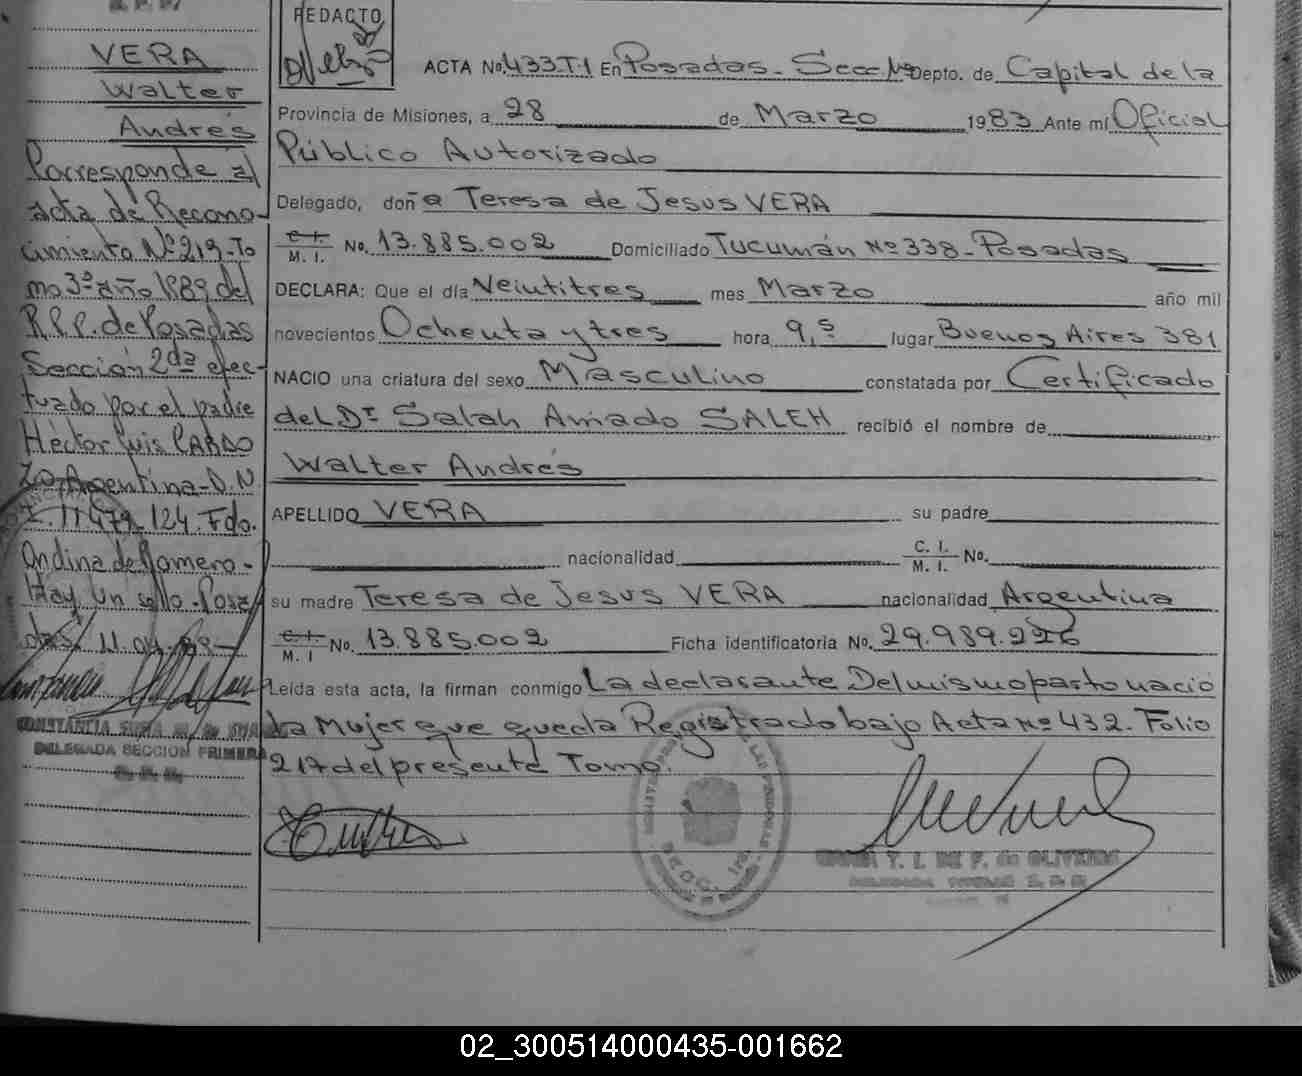 VERA
Walter
Andrés
Corresponde al
acta de Recono-
cimiento Nº 219-To
mo 3º año 1989 del
R.P.P. de Posadas
Sección 2da efec-
tuado por el padre
Héctor Luis CARDO
ZO-Argentina-D.N.
I. 11.479.124. Fdo.
Ondina de Romero.-
Hay un sello. Posa
das, 11.
CONSTANCIA
DELEGADA SECCION PRIMERA
REDACTO
ACTA No. 433T-1 En Posadas. Secc. Depto. de Capital de la
Provincia de Misiones, a 28 de Marzo 1983 Ante mí Oficial
Público Autorizado
Delegado, doña Teresa de Jesus VERA
C. I.
M. I. No. 13.885.002 Domiciliado Tucumán Nº 338-Posadas
DECLARA: Que el día Veintitres mes Marzo año mil
novecientos Ochenta y tres hora 9,5 lugar Buenos Aires 381
NACIO una criatura del sexo Masculino constatada por Certificado
del Dr Salah Amado SALEH recibió el nombre de
Walter Andrés
APELLIDO VERA su padre
nacionalidad C. I.
M. I. No.
su madre Teresa de Jesus VERA nacionalidad Argentina
C. I.
M. I No. 13.885.002 Ficha identificatoria No. 29.989.226
Leída esta acta, la firman conmigo La declarante Del mismo parto nació
la Mujer que queda Registrado bajo Acta Nº 432. Folio
217 del presente Tomo.
T. I. DE F. de OLIVEIRA
DELEGADA
02_300514000435-001662